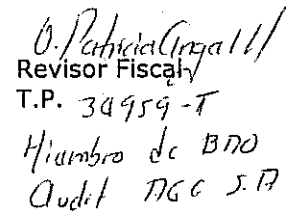 O. Patricia Angall
Revisor Fiscal
T.P. 34959-T
Miembro de BDO
Audit AGE S.A